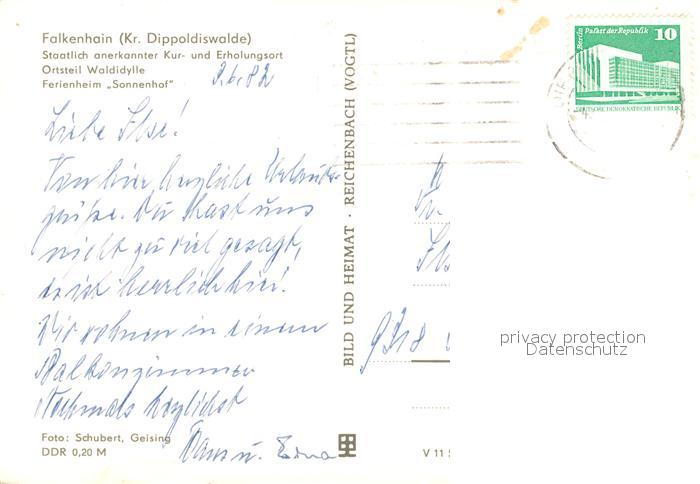 Falkenhain (Kr. Dippoldiswalde)
Staatlich anerkannter Kur- und Erholungsort
Ortsteil Waldidylle
Ferienheim „Sonnenhof"
9.6.82
Liebe Ilse!
Von hier herzliche Urlaubs-
grüße. Du hast uns
nicht zu viel gesagt,
es ist herrlich hier!
Wir wohnen in einem
Balkonzimmer
Nochmals herzlichst
Hans u. Edna
Foto: Schubert, Geising
DDR 0,20 M
BILD UND HEIMAT · REICHENBACH (VOGTL)
V 11
Berlin Palast der Republik 10
DEUTSCHE DEMOKRATISCHE REPUBLIK
privacy protection
Datenschutz